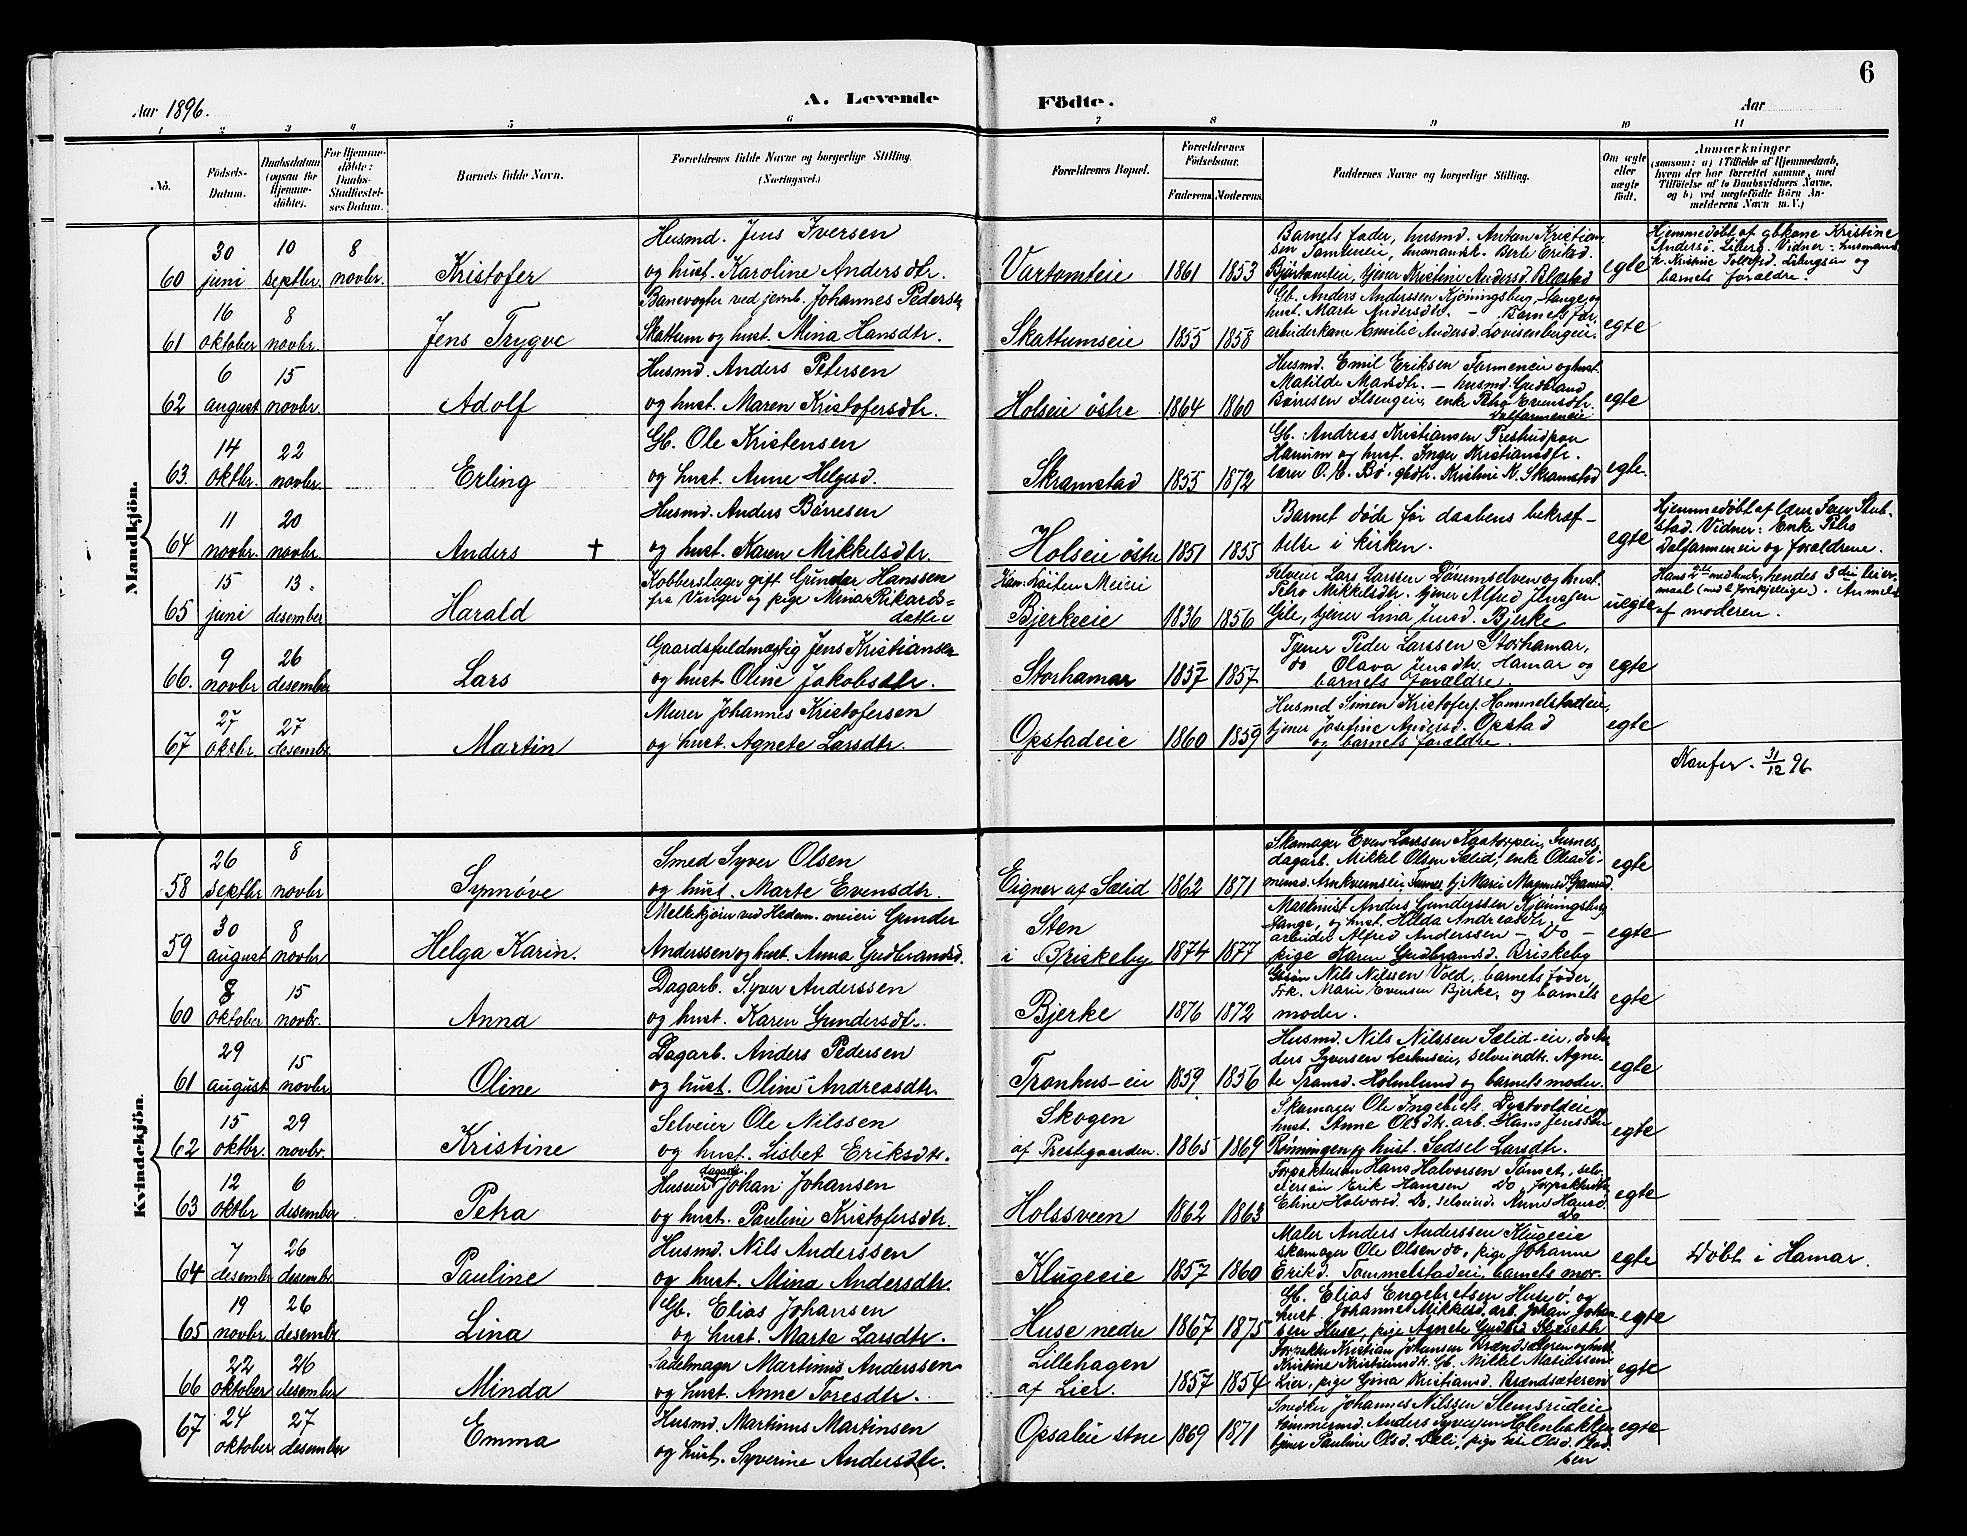 6
Aar 1896.
A. Levende
Fødte.
Aar
1 2 3 4 5 6 7 8 9 10 11
No.
Fødsels-
Datum.
Daabsdatum
(ogsaa for
Hjemme-
døbte).
For Hjemme-
døbte:
Daabs-
Stadfæstel-
ses Datum.
Barnets fulde Navn.
Forældrenes fulde Navne og borgerlige Stilling.
(Næringsvei.)
Forældrenes Bopæl.
Forældrenes
Fødselsaar.
Faderens. Moderens.
Faddernes Navne og borgerlige Stilling.
Om ægte
eller
uægte
født.
Anmærkninger
(saasom: a) i Tilfælde af Hjemmedaab,
hvem der har forrettet samme, med
Tilføielse af to Daabsvidners Navne,
og b) ved uægtefødte Børn An-
melderens Navn m. V.)
Mandkjøn.
60
30
juni
10
septbr.
8
novbr.
Kristofer
Husmd. Jens Iversen
og hust. Karoline Andersdtr.
Vartomteie
1861 1853
Barnets fader, husmd. Anton Kristian-
sen Tomteneie, husmandsk. Berte Eriksd.
Bjørtomteie, tjener Kristine Andersd. Blæstad
egte
Hjemmedøbt af gbkone Kristine
Andersd. Liberg. Vidner: husmands
k. Kristine Tollefsd. Libergseie og
barnets forældre.
61
16
oktober
8
novbr.
Jens Trygve
Banevogter ved jernb. Johannes Peders
Skattum og hust. Mina Hansdtr.
Skattumseie
1855 1858
Gb. Anders Anderssen Kjøningsberg, Stange, og
hust. Marte Andersdtr. – Barnets far,
arbeiderkone Emilie Andersd. Lovisenbergeie.
egte
62
6
august
15
novbr.
Adolf
Husmd. Anders Petersen
og hust. Maren Kristofersdtr.
Holseie østre
1864 1860
Husmd. Emil Eriksen Farmeneie og hust.
Matilde Marsdtr. – husmd. Gudbrand
Børresen Ilsengeie, enke Petro Evensdtr.
Dalfarmeneie
egte
63.
14
oktbr.
22
novbr.
Erling
Gb. Ole Kristensen
og hust. Anne Helgesd.
Skramstad
1855 1872
Gb. Andreas Kristiansen Presthudpou
Hamum og hust. Inger Kristiansdtr.
lærer O. M. Bø. gbdtr. Kristine K. Skramstad
egte.
64
11
novbr.
20
novbr.
Anders †
Husmd. Anders Børresen
og hust. Karen Mikkelsdtr.
Holseie østre
1851 1855
Barnet døde før daabens bekræf-
telse i kirken.
egte
Hjemmedøbt af lærer Iver Stub-
stad. Vidner: Enke Petro
Dalfarmeneie og forældrene.
65
15
juni
13
desember
Harald
Kobberslager gift Gunder Hanssen
fra Vinger og pige Mina Rikards-
datter
Løiten Meieri
Bjerkeeie
1836 1856
Selveier Lars Larssen Dørumselven og hust.
Petro Mikkelsdtr. tjener Alfred Jenssen
Gile, tjener Lina Jensd. Bjerke
uegte
Hans 2det med hende, hendes 3die leier-
maal (med 2 forskjellige). Anmeldt
af moderen.
66.
9
novbr
26
desember
Lars
Gaardsfuldmægtig Jens Kristiansen
og hust. Oline Jakobsdtr.
Storhamar
1857 1857
Tjener Peder Larssen Storhamar,
do Olava Jensdtr. Hamar og
barnets forældre.
egte
67
27
oktbr.
27
desembr
Martin
Murer Johannes Kristofersen
og hust. Agnete Larsdtr.
Opstadeie
1860 1859
Husmd Simen Kristofers. Hommelstadeie,
tjener Josefine Andersd. Opstad
og barnets forældre.
egte
Konfer. 31/12 96
Kvindekjøn.
58
26
septbr
8
novbr
Synnøve
Smed Syver Olsen
og hust. Marte Evensdtr.
Eigner af Sælid
1862 1871
Skomager Even Larssen Kaatorpeie, Furnes,
dagarb. Mikkel Olsen Sælid, enke Olea Si-
mensd. Arnkvernseie Furnes, tj. Marie Magnusd. Gaasrud
egte
59
30
august
8
novbr
Helga Karin.
Melkekjører ved Hedem. meieri Gunder
Anderssen og hust. Anna Gudbrandsd.
Sten
i Briskeby
1874 1877
Maskinist Anders Gunderssen Kjøningsberg
Stange, og hust. Hilda Andreasdtr. –
arbeider Alfred Anderssen – Do –
pige Karen Gudbrandsd. Briskeby
egte
60
8
oktober
15
novbr.
Anna
Dagarb. Syver Anderssen
og hust. Karen Gundersdtr.
Bjerke
1876 1872
Gbsøn Nils Nilssen Vold, barnets fader,
Frk. Marie Evensen Bjerke, og barnets
moder.
egte
61
29
august
15
novbr
Oline
Dagarb. Anders Pedersen
og hust. Oline Andreasdtr.
Tronhus-eie
1859 1856
Husmd. Nils Nilssen Sælid-eie, do An-
ders Syversen Lerhuseie, selveierdtr. Agne-
te Tronsd. Holmlund og barnets moder.
egte
62
15
oktbr.
29
novbr.
Kristine
Selveier Ole Nilssen
og hust. Lisbet Eriksdtr.
Skogen
af Prestegaarden.
1865 1869
Skomager Ole Ingebrets. Dystvoldeie
hust. Anne Olsdtr. arb. Hans Jenssen
Rønningen og hust. Sedsel Larsdtr.
egte
63
12
oktbr
6
desember
Petra
Huseier dagarb. Johan Johansen
og hust. Pauline Kristofersdtr.
Holssveen
1862 1863
Forpaktersøn Hans Halvorsen Tomet, selv-
eiersøn Erik Hanssen Do, forpakterdtr.
Eline Halvorsd. Do, selveierd. Anne Hansd.
Do
egte
64
7
desembr
26
desembr
Pauline
Husmd. Nils Anderssen
og hust. Mina Andersdtr.
Klugeeie
1857 1860
Maler Anders Anderssen Klugeeie
skomager Ole Olsen do, pige Johanne
Eriksd. Tommelstadeie, barnets mor.
egte
Døbt i Hamar.
65
19
novbr
26
desembr
Lina
Gb. Elias Johansen
og hust. Marte Larsdtr.
Huse nedre
1867 1875
Gb. Elias Engebretsen Huse ø. og
hust. Johanne Mikkelsd. arb. Johan Johan-
sen Huse, pige Agnete Gudbrd Skaseth
egte
66
22
oktober
26
desember
Minda
Sadelmager Martinus Anderssen
og hust. Anne Toresdtr.
Lillehagen
af Lier.
1857 1854
Forpakter Kristian Johansen Brændsæteren og hust.
Kristine Kristiansdtr. Gb. Mikkel Matiassen
Lier, pige Gina Kristiansd. Brændsæteren
egte
67
24
oktober
27
desember
Emma
Husmd. Martinus Martinsen
og hust. Syverine Andersdtr.
Opsaleie stne
1869 1871
Snedker Johannes Nilssen Stensrudeie
tømmermd. Anders Syversen Holenbakken
tjener Pauline Olsd. Dæli, pige Olsd.
sen
egte